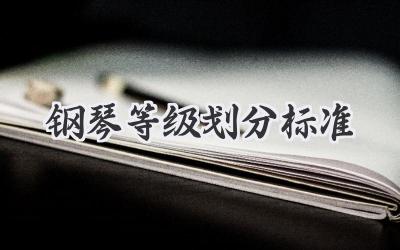 钢琴等级划分标准